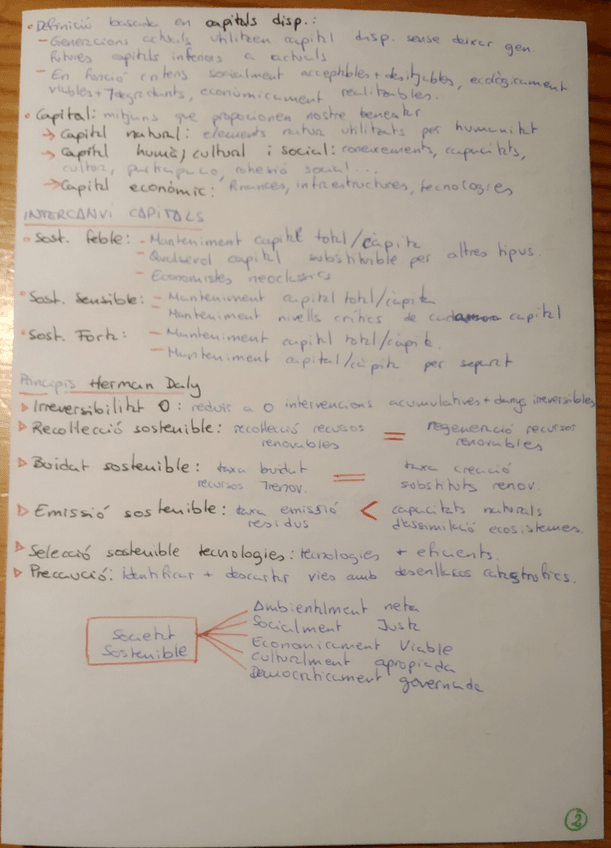 • Definició basada en capitals disp.:
– Generacions actuals utilitzen capital disp. sense deixar gen.
futures capitals inferiors a actuals
– En funció criteris socialment acceptables + desitjables, ecològicament
viables + , econòmicament realitzables.
• Capital: mitjans que proporcionen nostre benestar
→ Capital natural: elements natura utilitzats per humanitat
→ Capital humà, cultural i social: coneixements, capacitats,
cultura, participació, cohesió social...
→ Capital econòmic: finances, infraestructures, tecnologies
INTERCANVI CAPITALS
• Sost. feble: – Manteniment capital total/càpita
– Qualsevol capital substituible per altres tipus.
– Economistes neoclàssics
• Sost. Sensible: – Manteniment capital total/càpita
– Manteniment nivells crítics de cada capital
• Sost. Forta: – Manteniment capital total/càpita.
– Manteniment capital/càpita per separat
Principis Herman Daly
▷ Irreversibilitat 0: reduir a 0 intervencions acumulatives + danys irreversibles
▷ Recol·lecció sostenible: recol·lecció recursos renovables = regeneració recursos renovables
▷ Buidat sostenible: taxa buidat recursos renov. = taxa creació substituts renov.
▷ Emissió sostenible: taxa emissió residus < capacitats naturals d'assimilació ecosistemes.
▷ Selecció sostenible tecnologies: tecnologies + eficients.
▷ Precaució: identificar + descartar vies amb desenllaços catastròfics.
Societat
Sostenible
Ambientalment neta
Socialment Justa
Econòmicament Viable
Culturalment apropiada
Democràticament governada
2